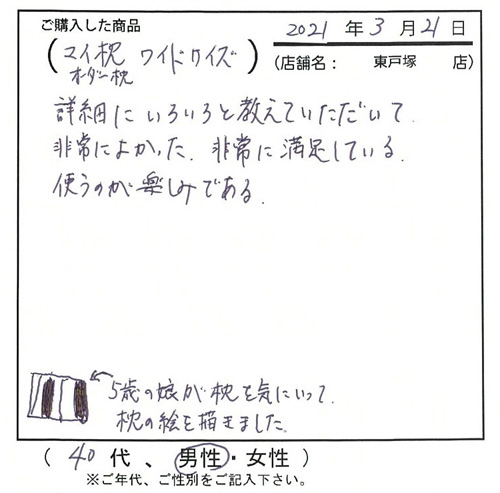 ご購入した商品
2021 年 3 月 21 日
(マイ枕 ワイドワイズ)
オーダー枕
(店舗名: 東戸塚 店)
詳細にいろいろと教えていただいて.
非常によかった. 非常に満足している.
使うのが楽しみである.
5歳の娘が枕を気にいって.
枕の絵を描きました.
( 40 代 、 男性・女性 )
※ご年代、ご性別をご記入下さい。